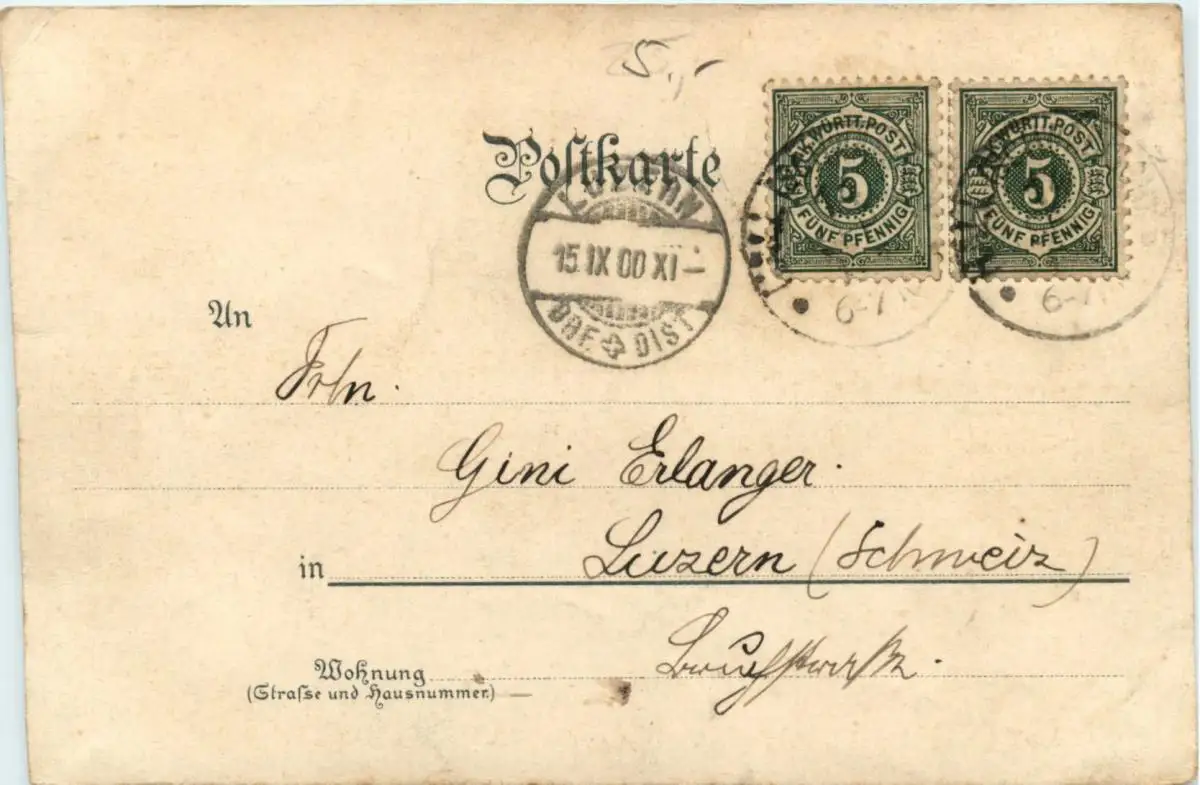 5,-
Postkarte
K.WÜRTT.POST
5
FÜNF PFENNIG
K.WÜRTT.POST
5
FÜNF PFENNIG
LUZERN
15.IX 00 XI–
BRF. DIST.
6-7 N
6-7
An
Frln.
Gini Erlanger.
in Luzern (Schweiz)
Wohnung
(Strasse und Hausnummer.)